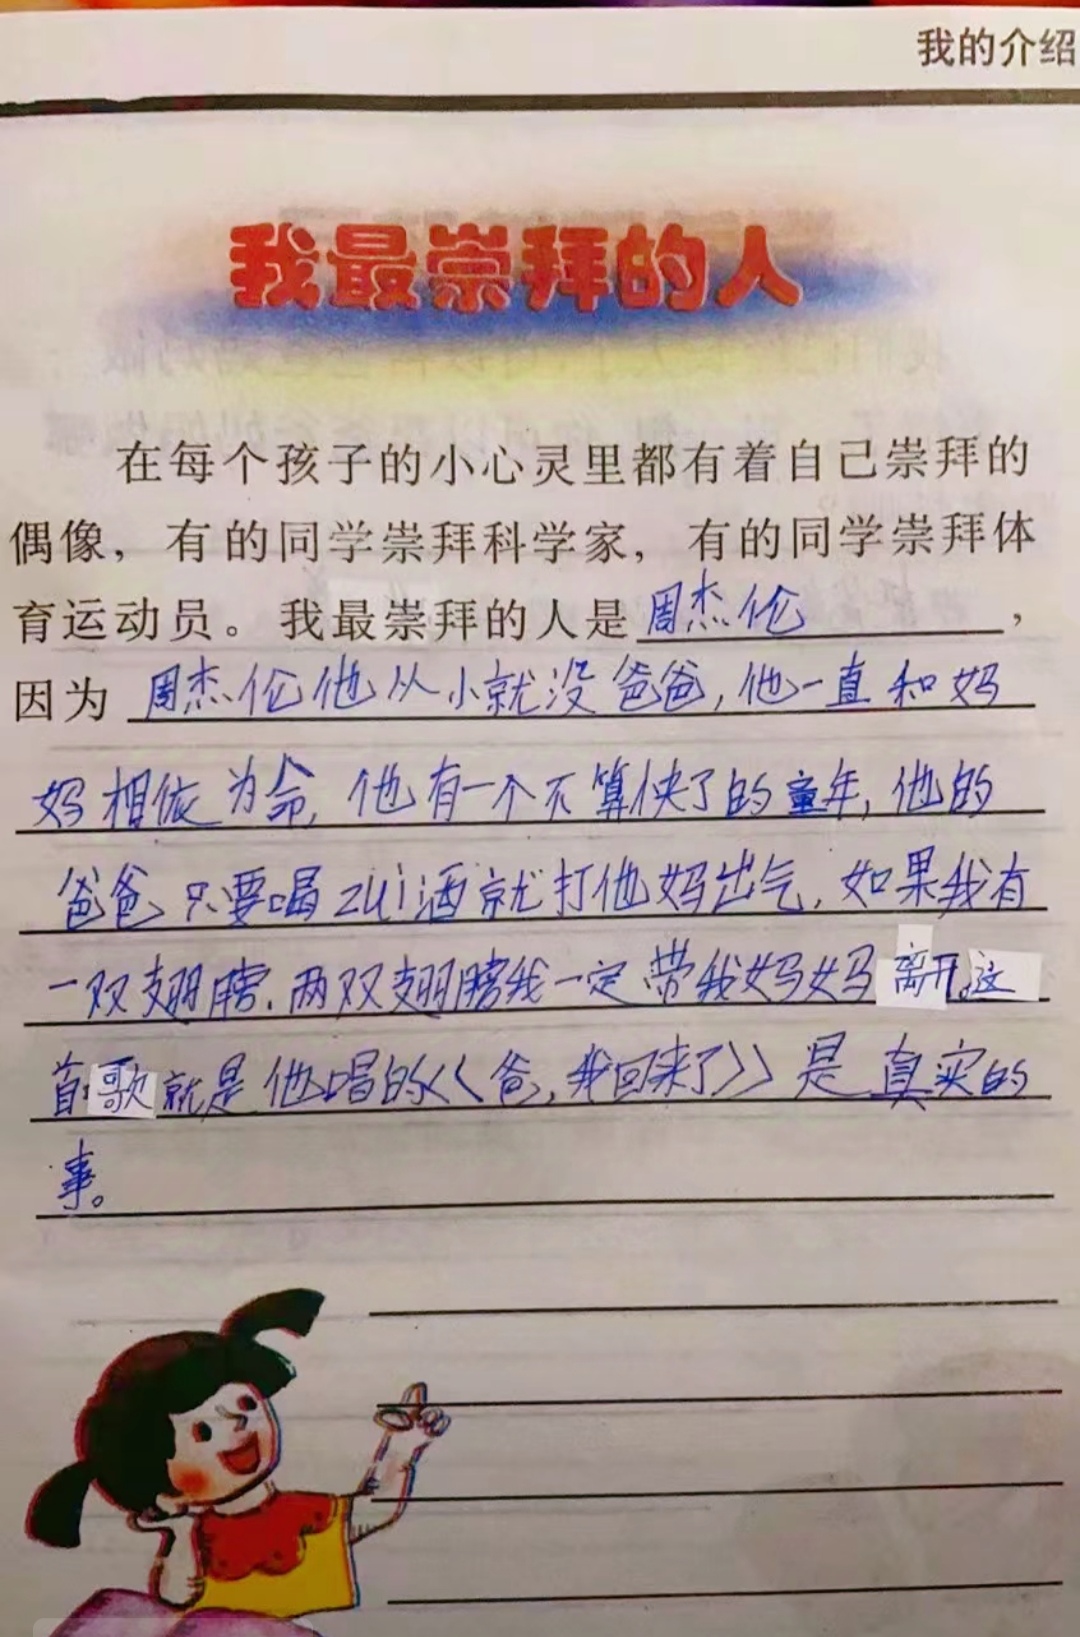 我的介绍
我最崇拜的人
在每个孩子的小心灵里都有着自己崇拜的
偶像，有的同学崇拜科学家，有的同学崇拜体
育运动员。我最崇拜的人是周杰伦，
因为周杰伦他从小就没爸爸，他一直和妈
妈相依为命，他有一个不算快了的童年，他的
爸爸只要喝zui酒就打他妈出气，如果我有
一双翅膀，两双翅膀我一定带我妈妈离开。这
首歌就是他唱的《爸，我回来了》是真实的
事。